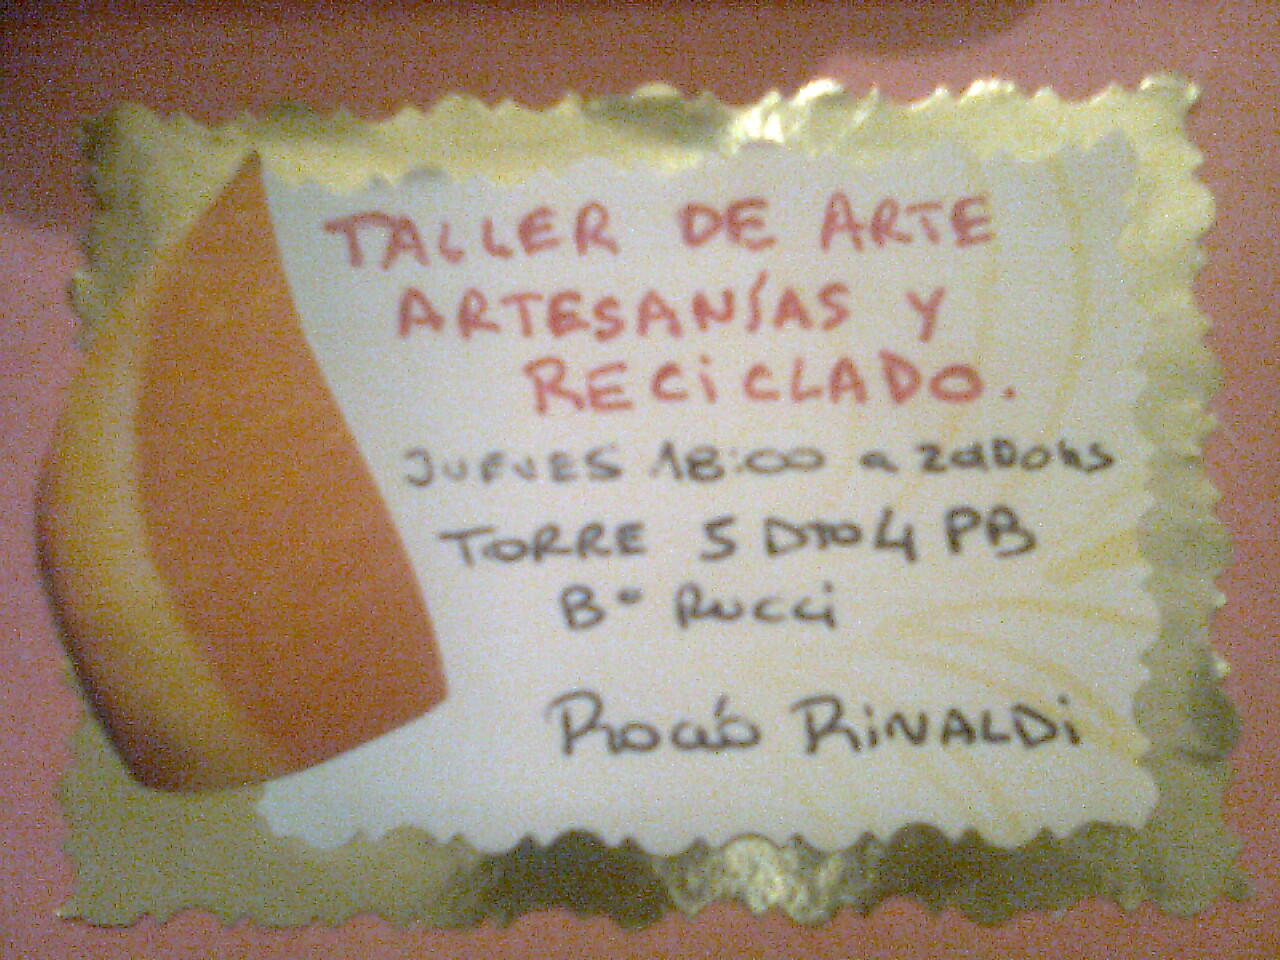 TALLER DE ARTE
ARTESANÍAS Y
RECiCLADO.
JUEVES 18:00 a 20:00hs
TORRE 5 DTO 4 PB
B° Rucci
Rocío RiNALDi